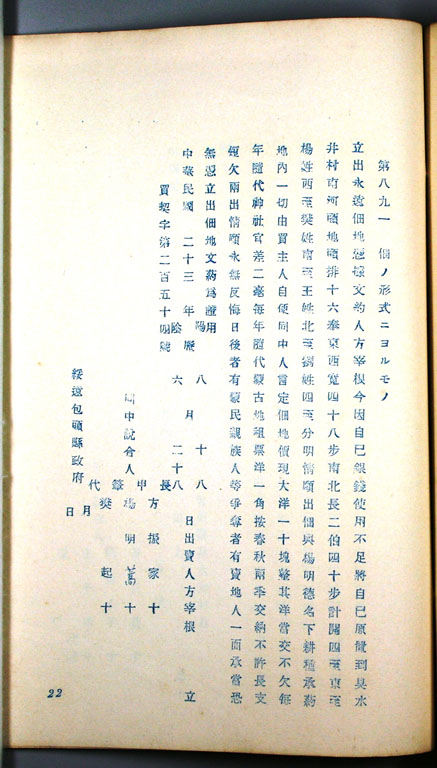 第八九一　佃ノ形式ニヨルモノ
立出永遠佃地憑據文約人方宰根今因自己銀錢使用不足將自己原置到臭水
井村南河頭地順排十六奉東西寬四十八步南北長二伯四十步計開四至東至
楊姓西至樊姓南至王姓北至劉姓四至分明情願出佃與楊明德名下耕種承業
地內一切由買主人自便同中人言定佃地價現大洋一十塊整其洋當交不欠每
年隨代神社官差二毫每年隨代蒙古地租票洋一角按春秋兩季交納不許長支
短欠兩出情願永無反悔日後者有蒙民親族人等爭奪者有賣地人一面承當恐
無憑立出佃地文約為證用
中華民國　二十三　年　陽曆　八　月　十八　日出賣人方宰根　立
陰　六　月　二十八
買契字第二百五十四號
同中說合人　甲長　方振家十
代筆　楊明蒿十
樊起十
綏遠包頭縣政府　月　日
22